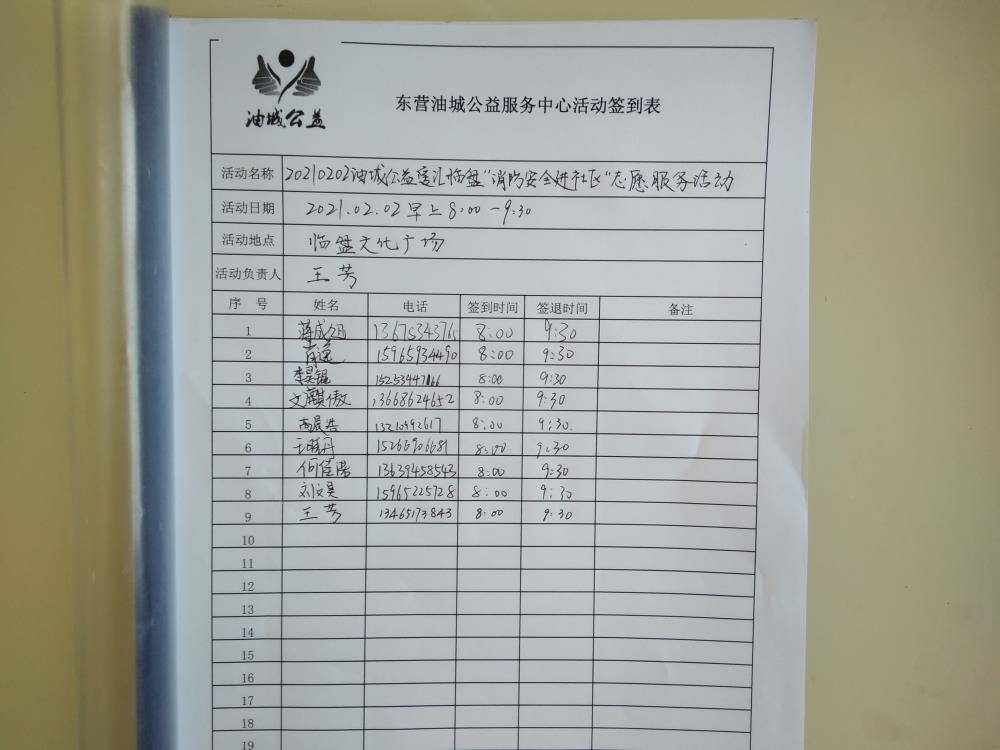 油城公益
东营油城公益服务中心活动签到表
活动名称 20210202油城公益爱汇临盘"消防安全进社区"志愿服务活动
活动日期 2021.02.02早上8:00-9:30
活动地点 临盘文化广场
活动负责人 王芳
序号 姓名 电话 签到时间 签退时间 备注
1 1367534376 8:00 9:30
2 15965934490 8:00 9:30
3 李昊锟 15253447166 8:00 9:30
4 文麒傲 13668624652 8:00 9:30
5 高晨浩 13210992617 8:00 9:30
6 王晓丹 15266906681 8:00 9:30
7 何佳阳 13639458543 8:00 9:30
8 刘文昊 15965225728 8:00 9:30
9 王芳 13465173843 8:00 9:30
10
11
12
13
14
15
16
17
18
19